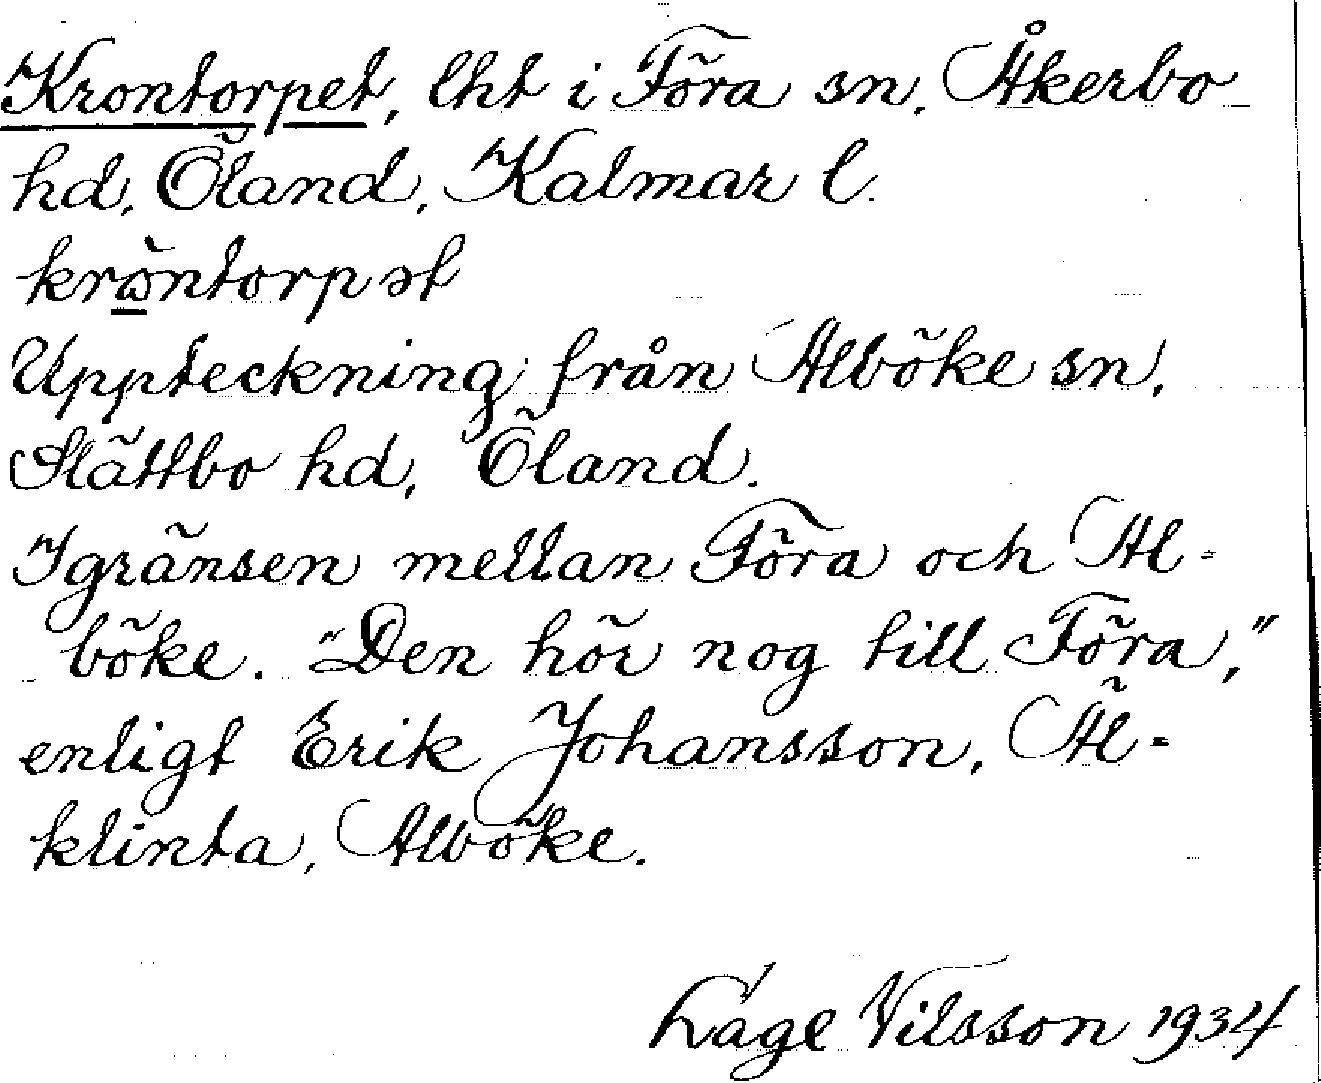 Krontorpet, lht i Föra sn, Åkerbo
hd, Öland, Kalmar l.
krøntorpət
Uppteckning från Alböke sn,
Slättbo hd, Öland.
I gränsen mellan Föra och Al-
böke. "Den hör nog till Föra,"
enligt Erik Johansson, Äl-
klinta, Alböke.
Lage Nilsson 1934